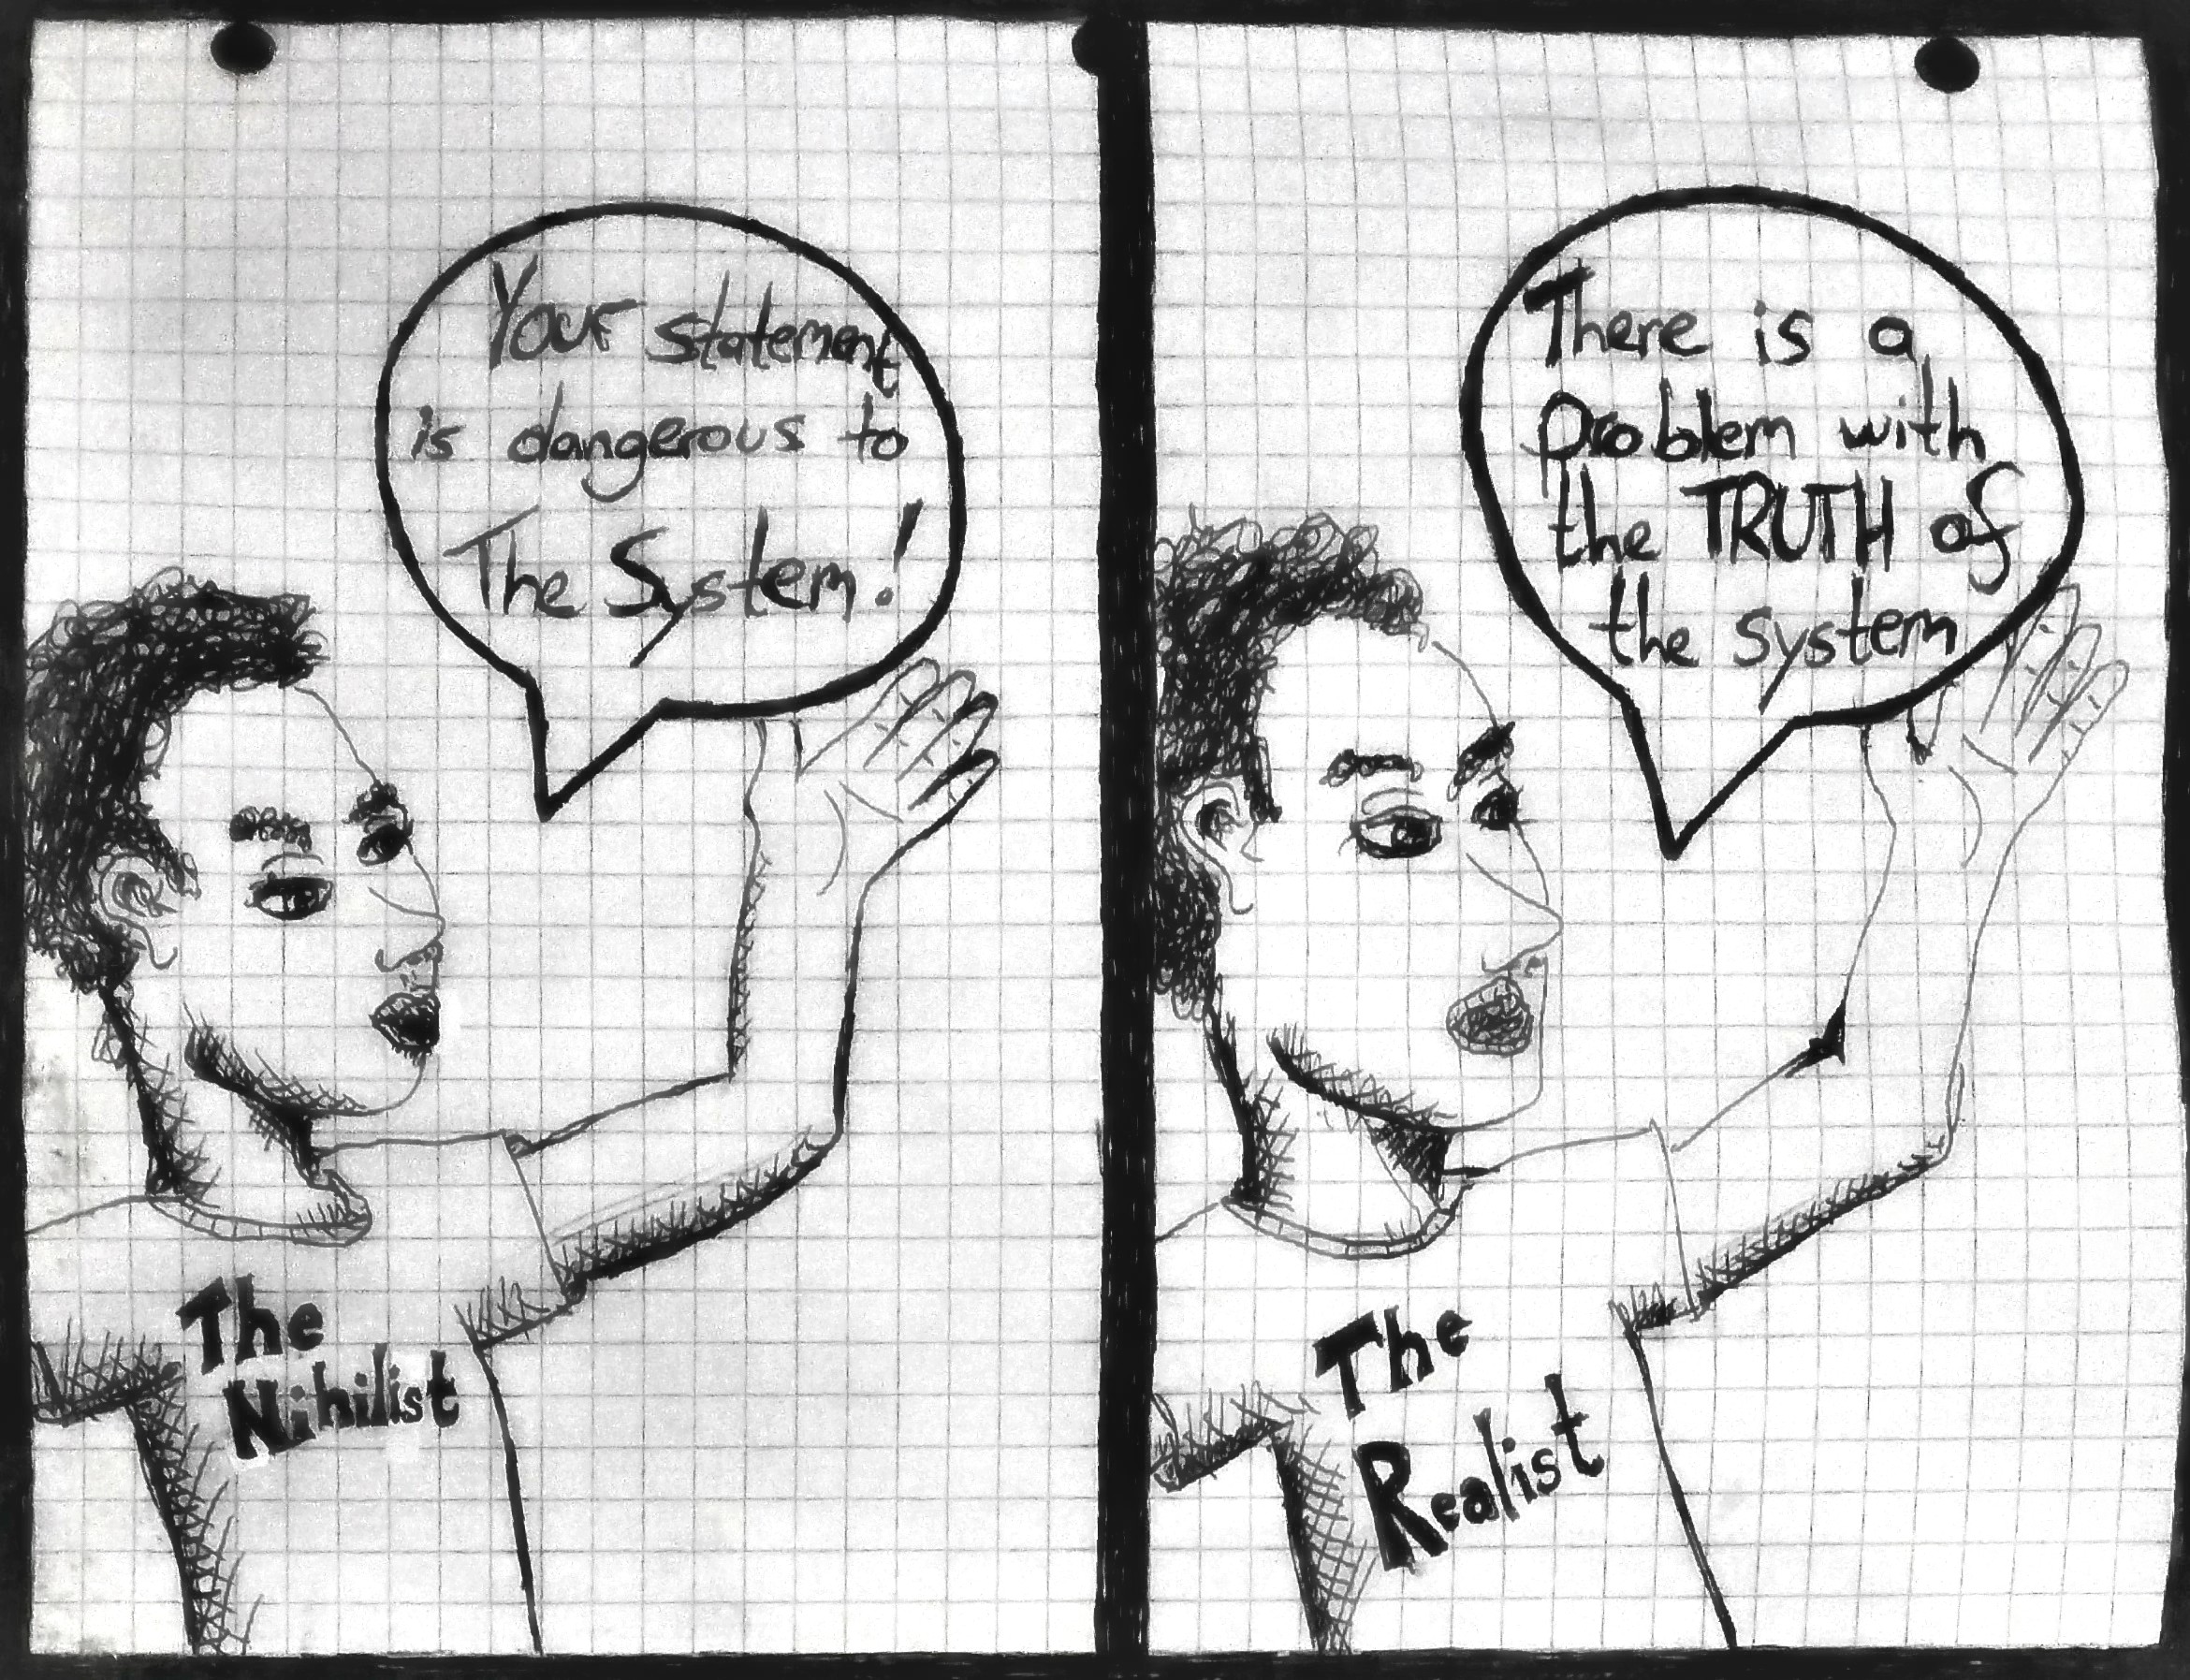 Your statement
is dangerous to
The System!
The
Nihilist
There is a
problem with
the TRUTH of
the system
The
Realist